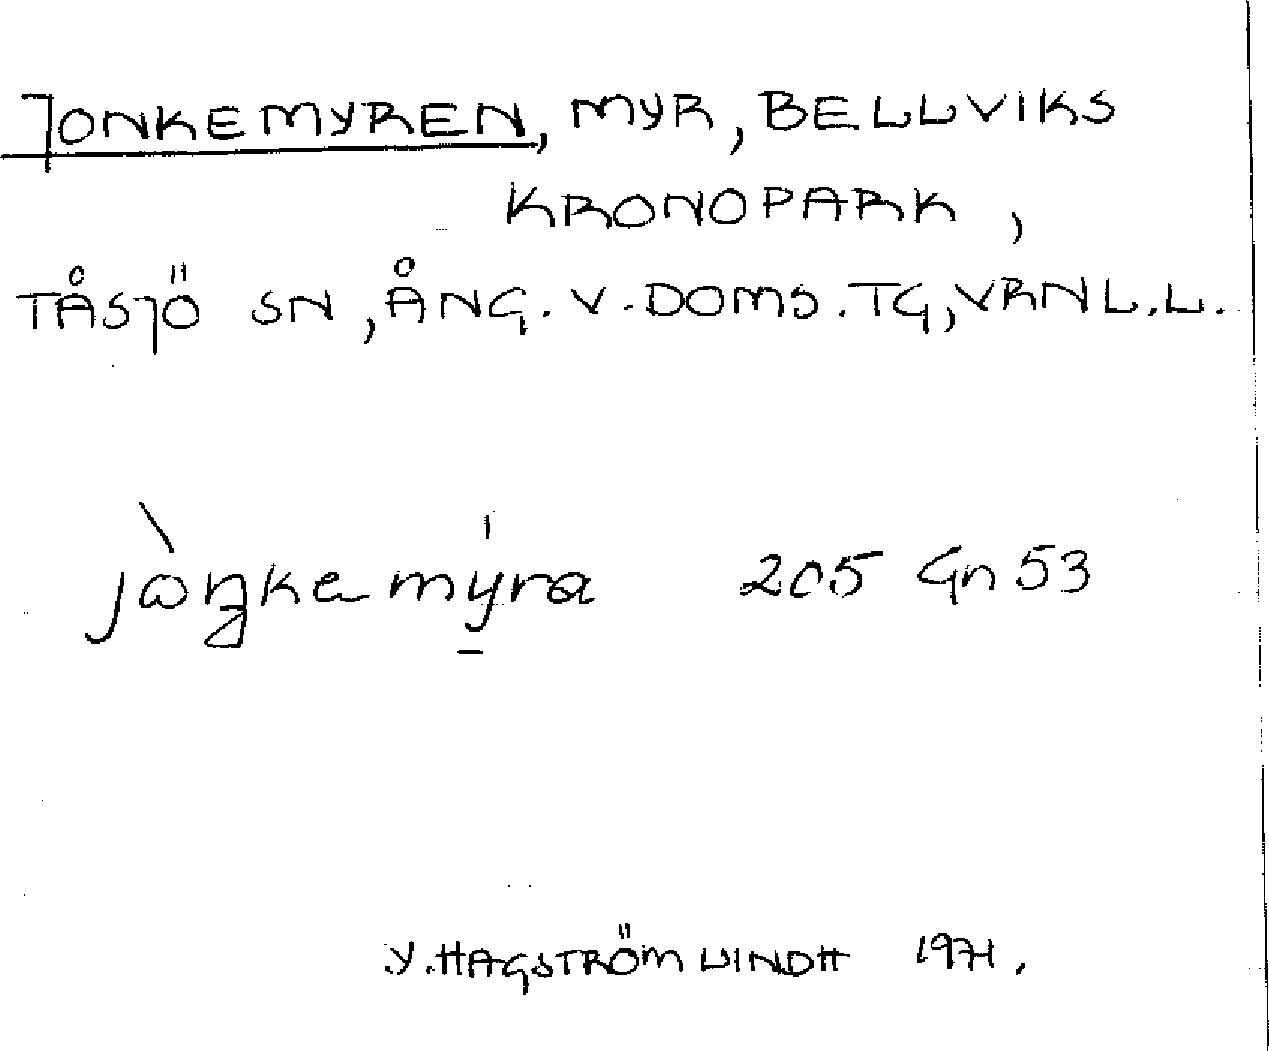 JONKEMYREN, MYR, BELLVIKS
KRONOPARK,
TÅSJÖ SN, ÅNG. V. DOMS. TG, VRNL.L.
205 Gn 53
Y. HAGSTRÖM LINDH 1971.